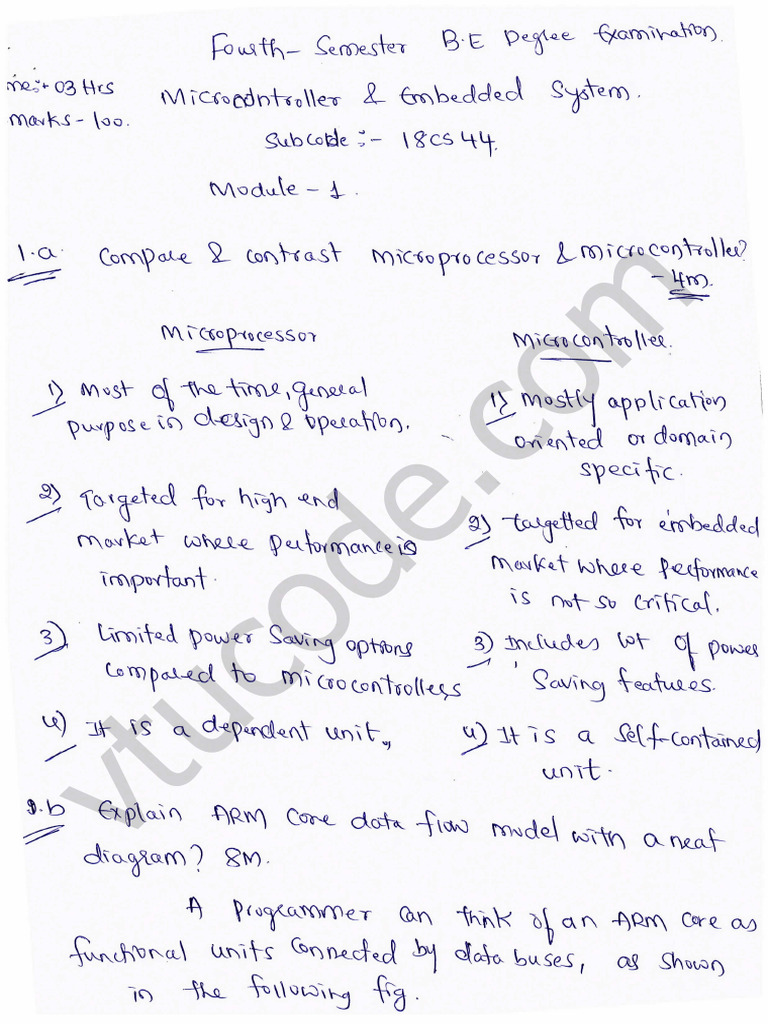 Fourth - Semester B.E Degree Examination.
me:- 03 Hrs
marks - 100.
Microcontroller & Embedded System.
Subcode :- 18CS44.
Module - 1.
1.a. Compare & contrast microprocessor & microcontroller?
- 4m.
Microprocessor
Microcontroller.
1) Most of the time, general
purpose in design & operation.
1) Mostly application
oriented or domain
specific.
2) Targeted for high end
market where performance is
important.
2) targetted for embedded
market where performance
is not so critical.
3) Limited power saving options
compared to microcontrollers
3) Includes lot of power
saving features.
4) It is a dependent unit,
4) It is a self-contained
unit.
1.b Explain ARM core data flow model with a neat
diagram? 8M.
A programmer can think of an ARM core as
functional units connected by data buses, as shown
in the following fig.
vtucode.com